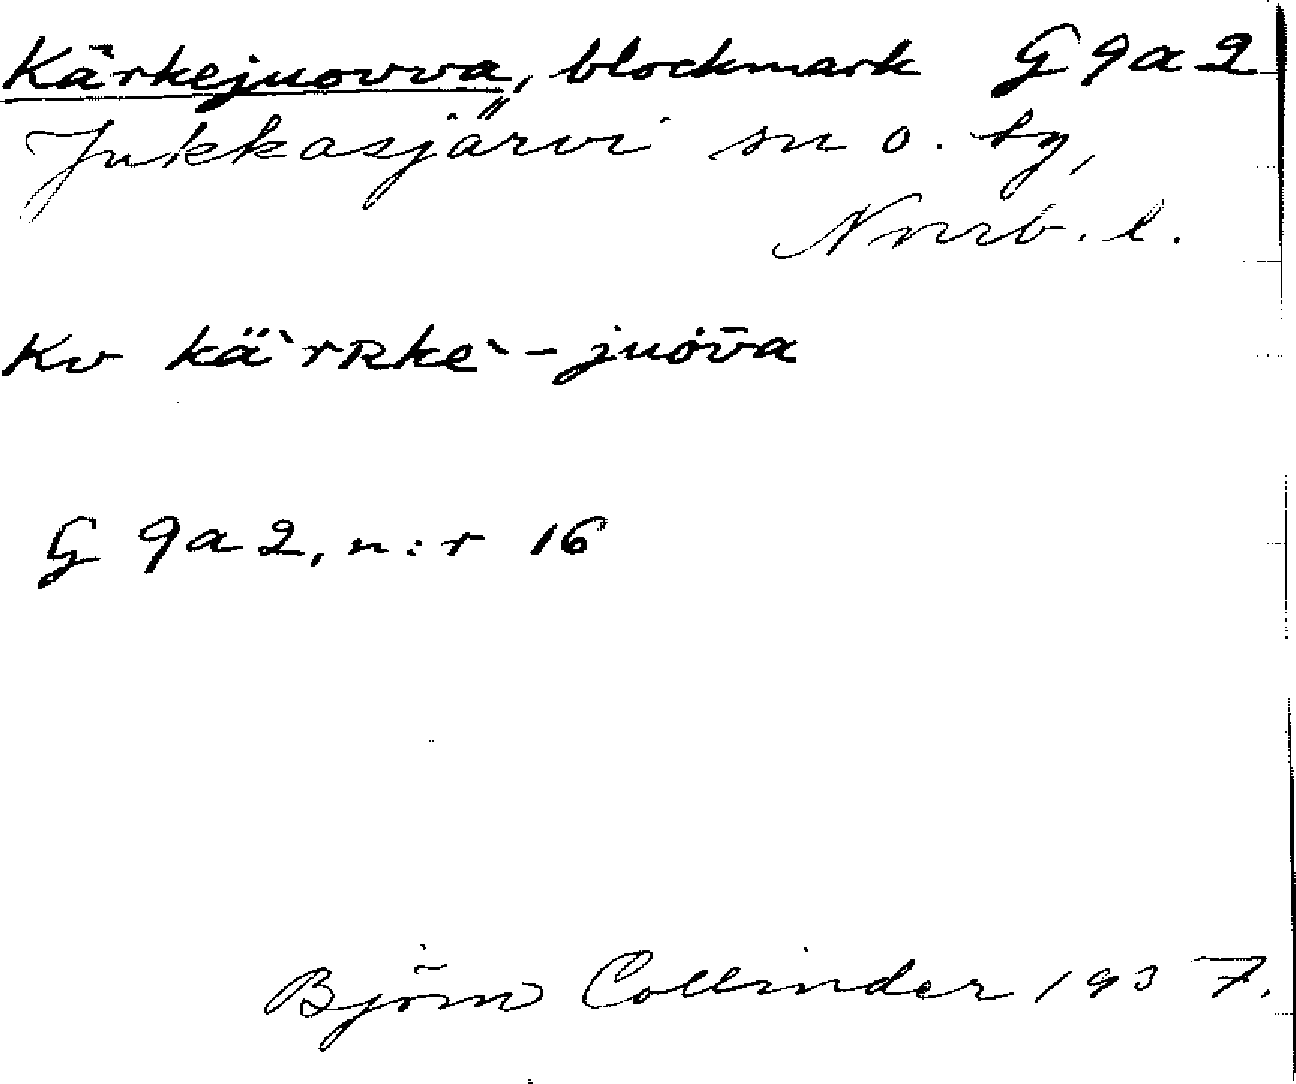 Kärkejuovva, blockmark G 9 a 2
Jukkasjärvi sn o. tg,
Norrb. l.
Kv kä`rʀke`-juȯv̄a
G 9 a 2, n:r 16
Björn Collinder 1937.